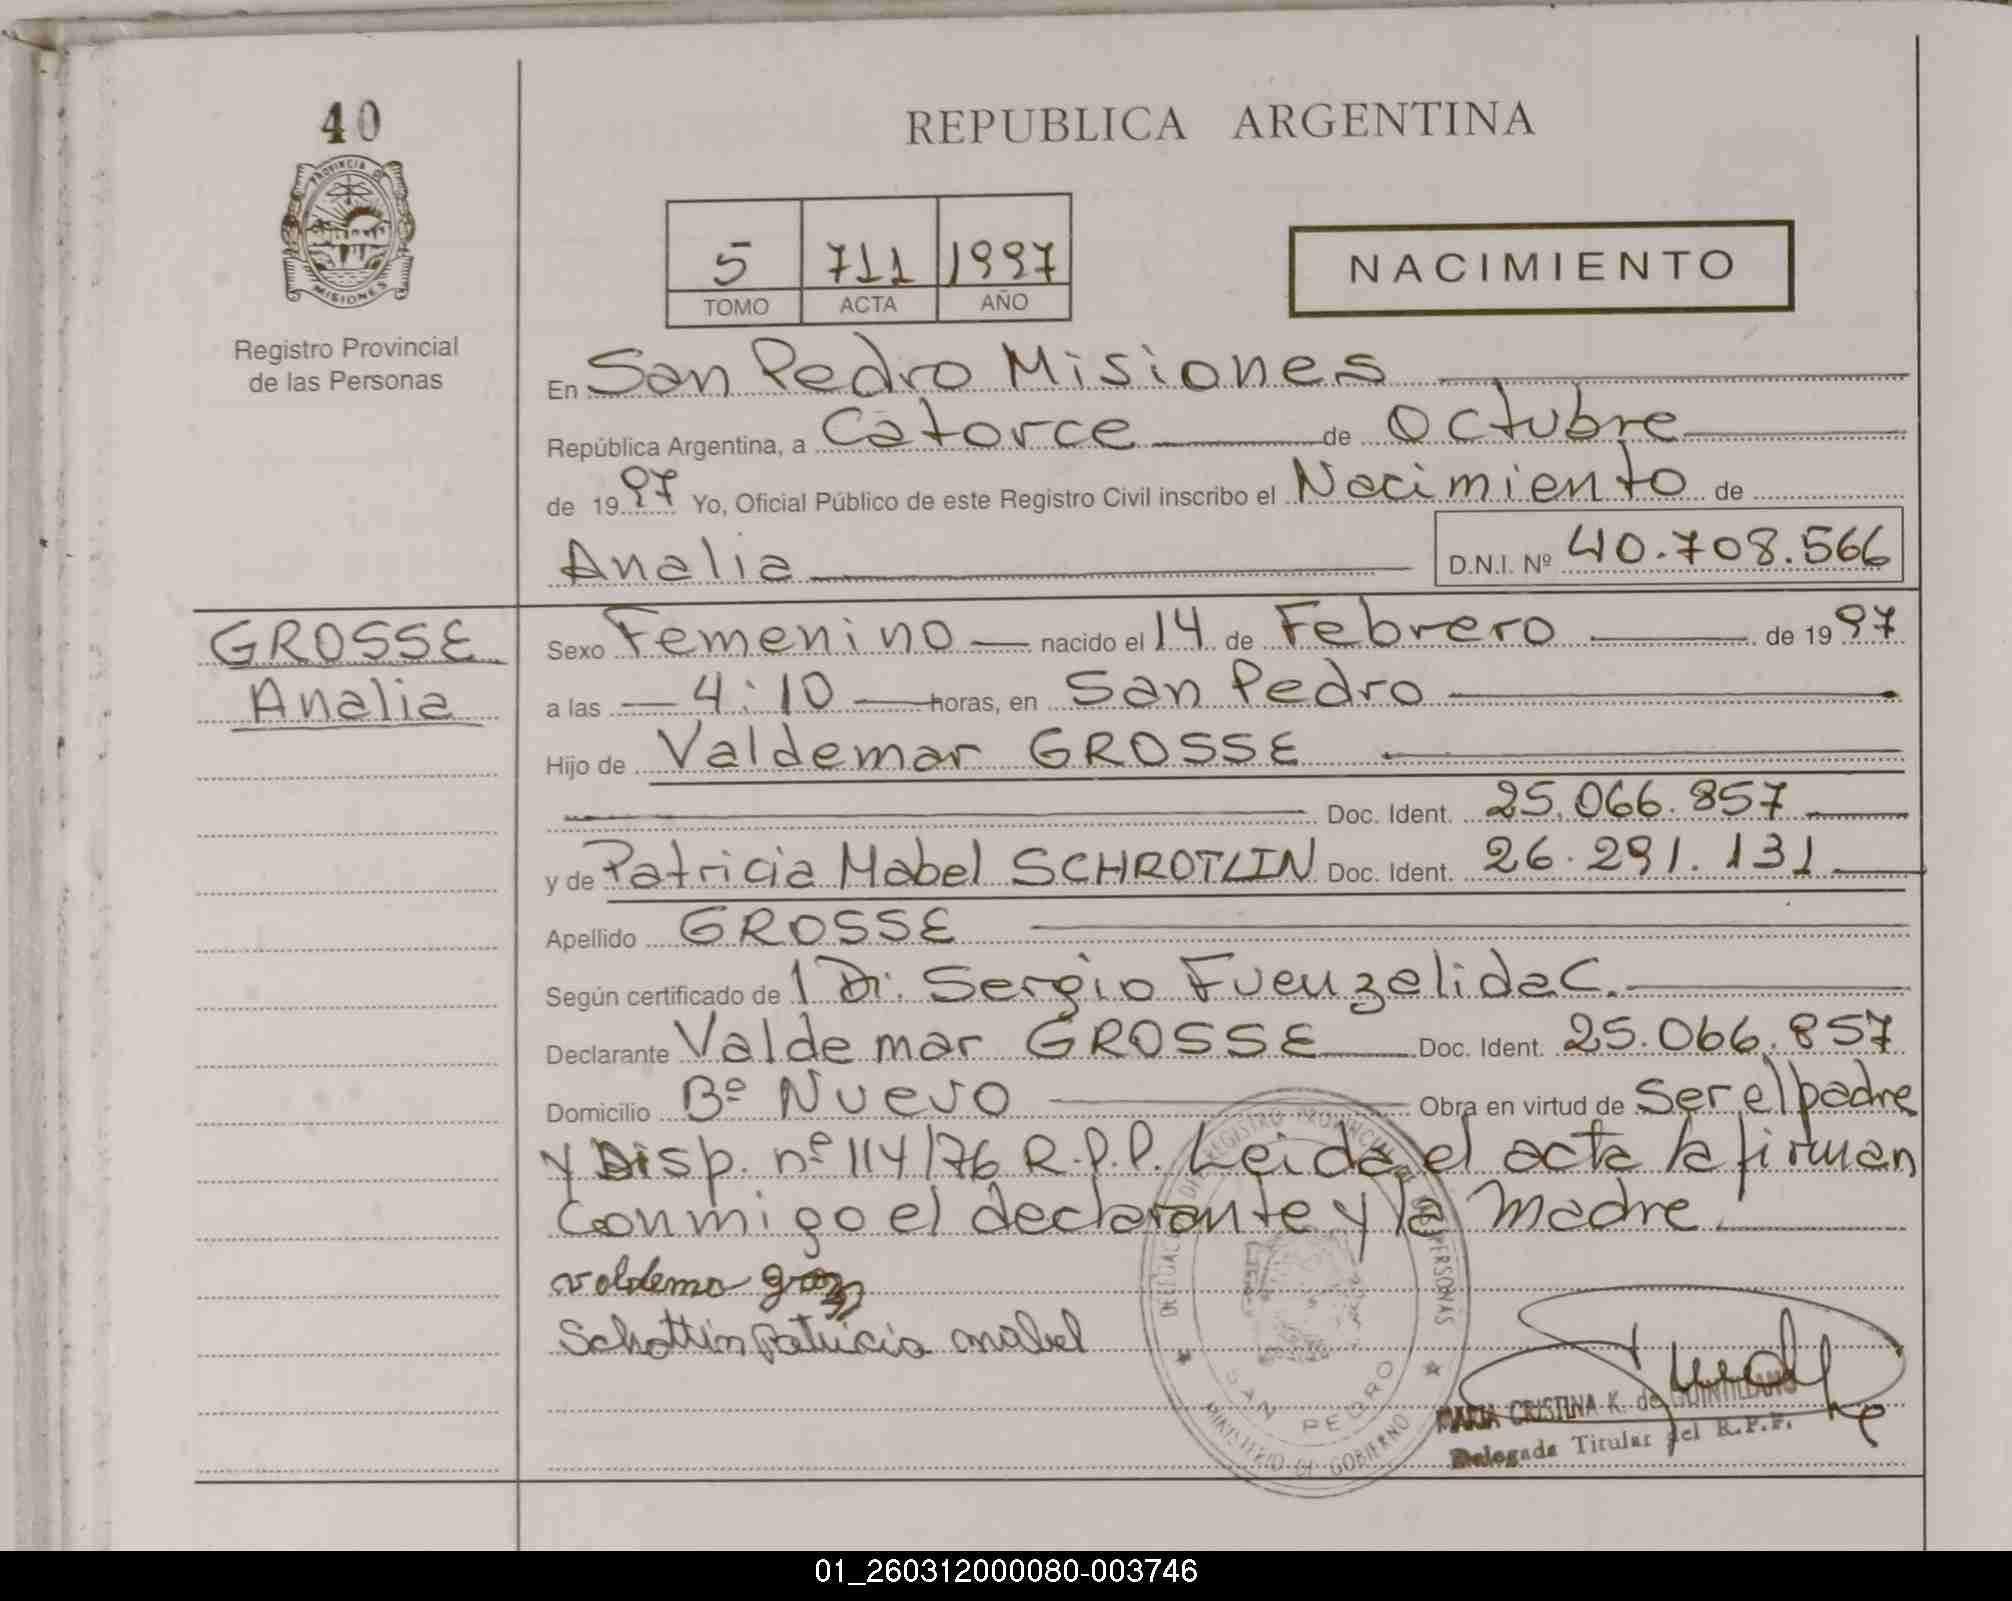 40
PROVINCIA DE
MISIONES
Registro Provincial
de las Personas
REPUBLICA ARGENTINA
5 711 1997
TOMO ACTA AÑO
NACIMIENTO
En San Pedro Misiones
República Argentina, a Catorce de Octubre
de 1997 Yo, Oficial Público de este Registro Civil inscribo el Nacimiento de
Analia D.N.I. Nº 40.708.566
GROSSE
Analia
Sexo Femenino nacido el 14 de Febrero de 1997
a las 4:10 horas, en San Pedro
Hijo de Valdemar GROSSE
Doc. Ident. 25.066.857
y de Patricia Mabel SCHROTLIN Doc. Ident. 26.291.131
Apellido GROSSE
Según certificado de 1 Dr. Sergio Fuenzalida C.
Declarante Valdemar GROSSE Doc. Ident. 25.066.857
Domicilio Bº Nuevo Obra en virtud de Ser el padre
y Disp. nº 114/76 R.P.P. Leida el acta la firman
Conmigo el declarante y la Madre.
valdema
Schottin patricia mabel
DELEGACION DE REGISTRO PROVINCIAL DE LAS PERSONAS
SAN PEDRO
MINISTERIO DE GOBIERNO
MARIA CRISTINA K. de QUINTILLANO
Delegada Titular del R.P.P.
01_260312000080-003746